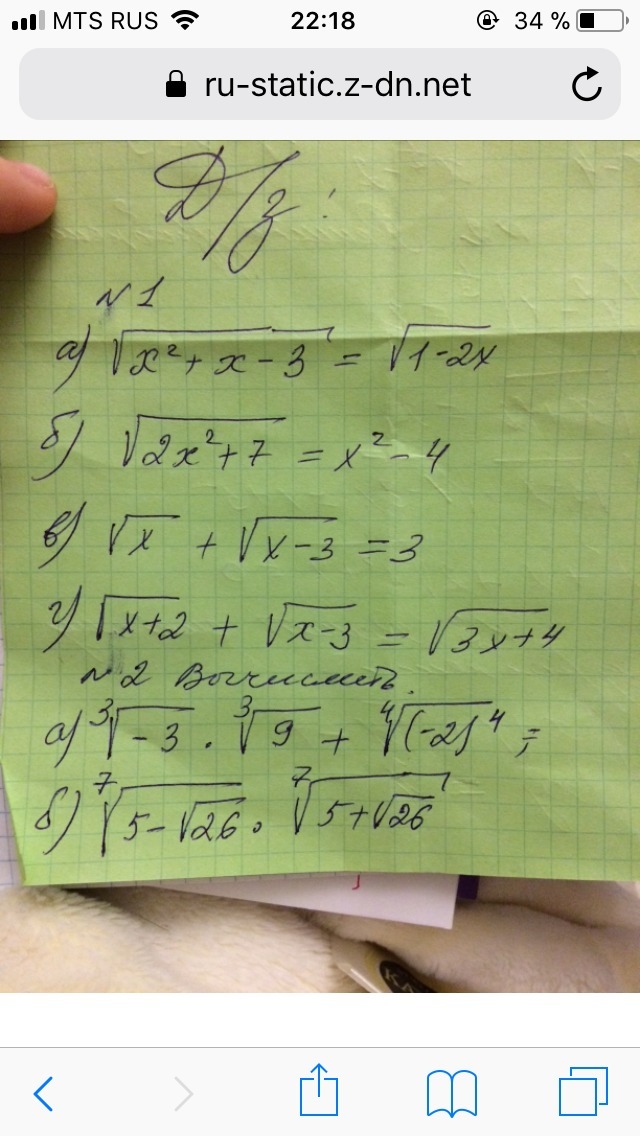 MTS RUS 22:18 34 %
ru-static.z-dn.net
Д/з:
№1
а) √(x²+x-3) = √(1-2x)
б) √(2x²+7) = x²-4
в) √x + √(x-3) = 3
г) √(x+2) + √(x-3) = √(3x+4)
№2 Вычислить.
а) ³√-3 · ³√9 + ⁴√(-2)⁴ ;
б) ⁷√(5-√26) · ⁷√(5+√26)